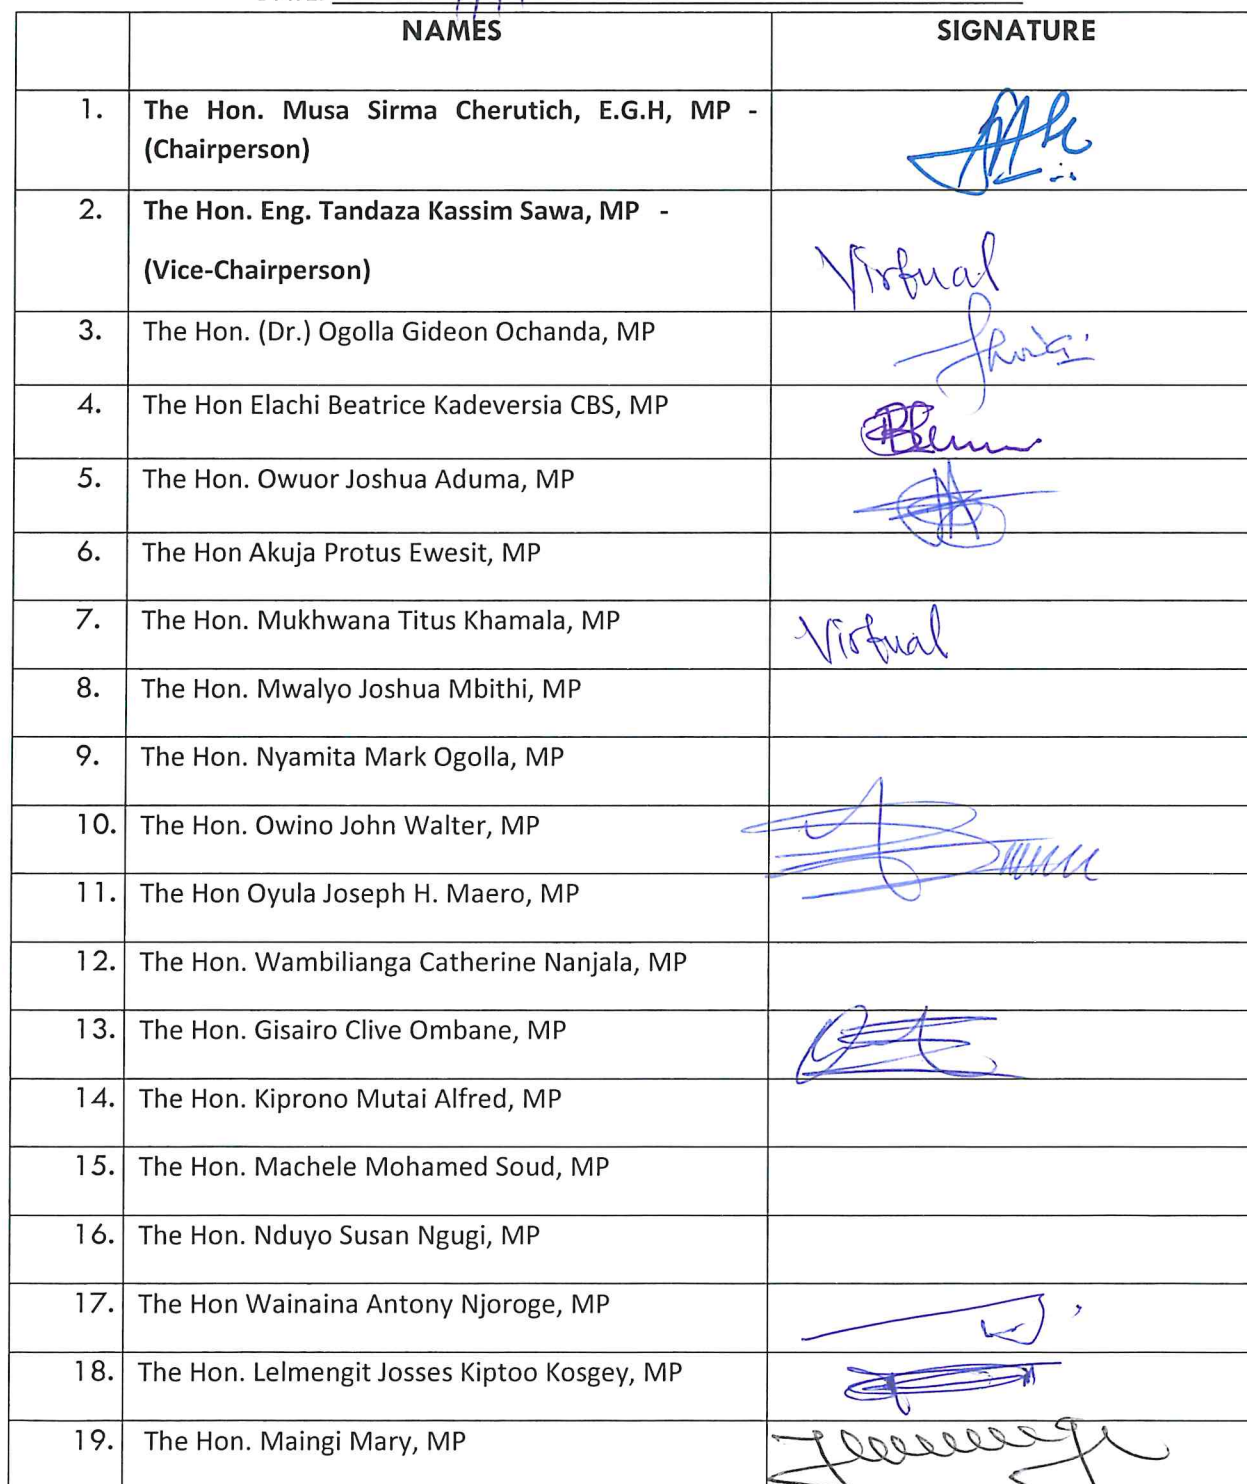 NAMES SIGNATURE
1. The Hon. Musa Sirma Cherutich, E.G.H, MP -
(Chairperson)
2. The Hon. Eng. Tandaza Kassim Sawa, MP -
(Vice-Chairperson) Virtual
3. The Hon. (Dr.) Ogolla Gideon Ochanda, MP
4. The Hon Elachi Beatrice Kadeversia CBS, MP
5. The Hon. Owuor Joshua Aduma, MP
6. The Hon Akuja Protus Ewesit, MP
7. The Hon. Mukhwana Titus Khamala, MP Virtual
8. The Hon. Mwalyo Joshua Mbithi, MP
9. The Hon. Nyamita Mark Ogolla, MP
10. The Hon. Owino John Walter, MP
11. The Hon Oyula Joseph H. Maero, MP
12. The Hon. Wambilianga Catherine Nanjala, MP
13. The Hon. Gisairo Clive Ombane, MP
14. The Hon. Kiprono Mutai Alfred, MP
15. The Hon. Machele Mohamed Soud, MP
16. The Hon. Nduyo Susan Ngugi, MP
17. The Hon Wainaina Antony Njoroge, MP
18. The Hon. Lelmengit Josses Kiptoo Kosgey, MP
19. The Hon. Maingi Mary, MP